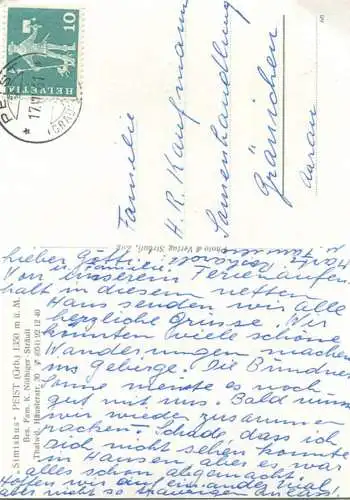 HELVETIA 10
PEIST
17.VII.61
(GRAUB.)
Familie
H. R. Kaufmann
Samenhandlung
Gränichen
Aarau
Photo & Verlag Sträuli, Zch.
"Simishus" PEIST (Grb.) 1350 m ü. M.
Bes. Fam. K. Nüninger-Sträuli
Thalwil, Häuslerstr. 30 ✆ (051) 92 12 40
Lieber Götti
u. Familie.
Von unserem Ferienaufent-
halt in diesem netten
Haus senden wir alle
herzliche Grüsse. Wir
konnten viele schöne
Wanderungen machen
ins Gebirge. Die Bündner
Sonne meinte es noch
gut mit uns. Bald müssen
wir wieder zusammen
packen. Schade, dass ich
Dich nicht sehen konnte
in Hausen aber es war
alles schon abgemacht.
Hoffen wir auf ein ander Mal,
aber nicht so